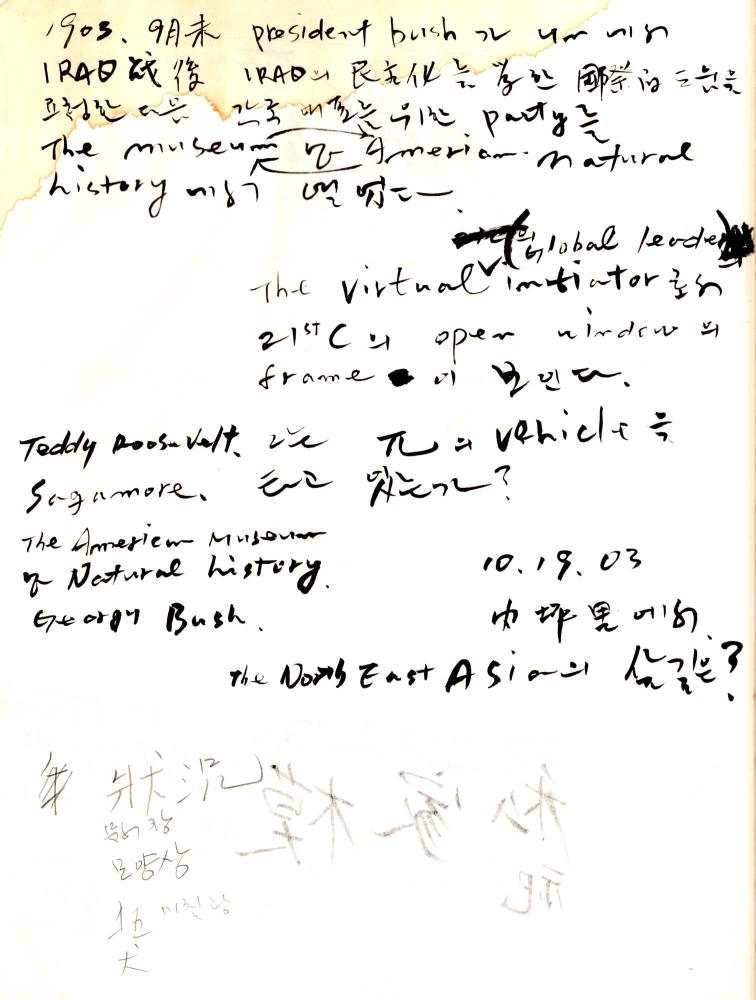 1903. 9月末 president bush가 UN에서
IRAQ 戰後 IRAQ의 民主化를 위한 國際的 도움을
요청한 다음 각국 대표를 위한 party를
The museum of Ameriam. natural
history에서 열었다.
Global leader
The virtual initiator로서
21st C의 open window의
frame 이 보인다.
Teddy Roosevelt. 그는 π의 vehicle을
Sagamore. 타고 있는가?
The American Museum
of Natural history.
George Bush.
10.19.03
에서.
the North East Asia의 살길은?
狀況
문서장
모양상
犬